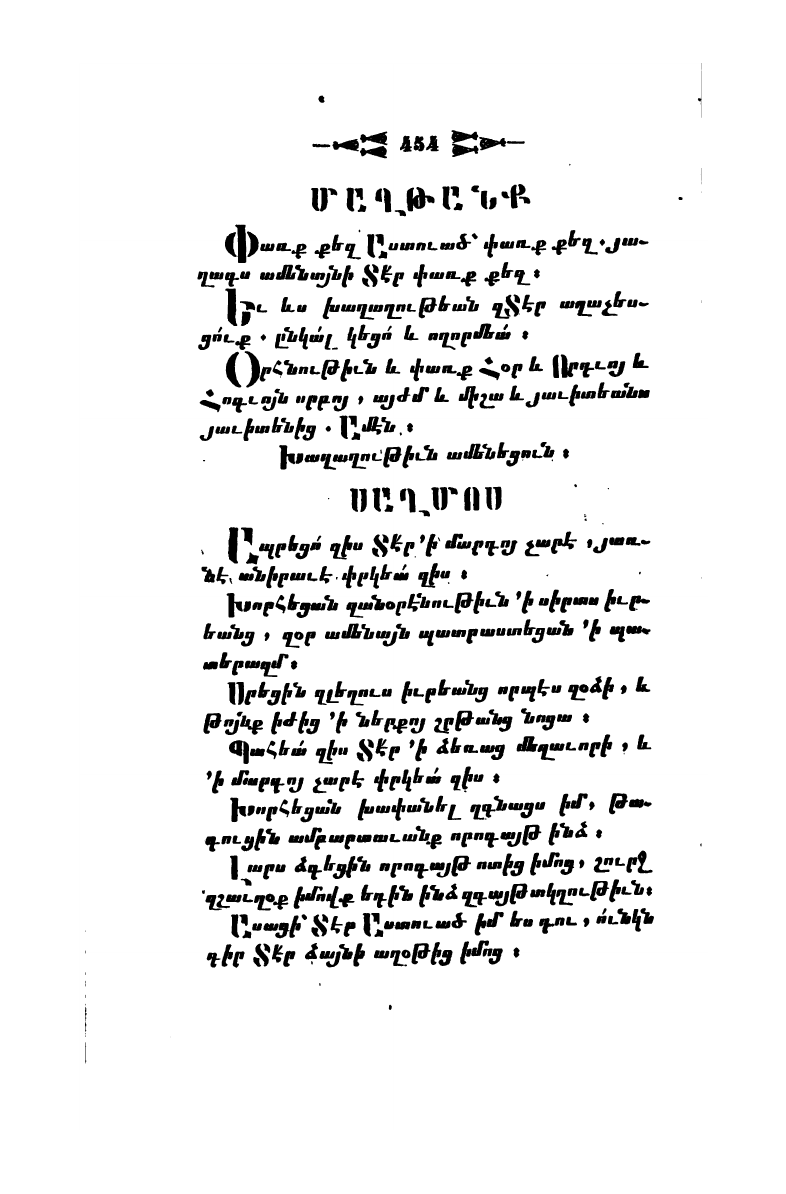 454
ՄԱՂԹԱՆՔ
Փառք քեզ Աստուած՝ փառք քեզ. յա֊
ղագս ամենայնի Տէր փառք քեզ։
Եւ ևս խաղաղութեան զՏէր աղաչես֊
ցո՛ւք. ընկա՛լ կեցո՛ և ողորմեա՛։
Օրհնութիւն և փառք Հօր և Որդւոյ և
Հոգւոյն սրբոյ, այժմ և միշտ և յաւիտեանս
յաւիտենից. Ամէն։
Խաղաղութիւն ամենեցուն։
ՍԱՂՄՈՍ
Ապրեցո՛ զիս Տէր ՚ի մարդոյ չարէ, յառ֊
նէ անիրաւէ փրկեա՛ զիս։
Խորհեցան զանօրէնութիւն ՚ի սիրտս իւր֊
եանց, զօր ամենայն պատրաստեցան ՚ի պա֊
տերազմ։
Սրեցին զլեզուս իւրեանց որպէս զօձի, և
թոյնք իժից ՚ի ներքոյ շրթանց նոցա։
Պահեա՛ զիս Տէր ՚ի ձեռաց մեղաւորի, և
՚ի մարդոյ չարէ փրկեա՛ զիս։
Խորհեցան խափանել զգնացս իմ, թա֊
գուցին ամբարտաւանք որոգայթ ինձ։
Լարս ձգեցին որոգայթ ոտից իմոց, շուրջ
զշաւղօք իմովք եդին ինձ զգայթակղութիւն։
Ասացի՝ Տէր Աստուած իմ ես դու, ո՛ւնկն
դիր Տէր ձայնի աղօթից իմոց։